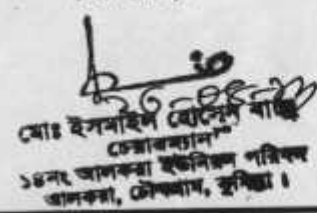 মোঃ ইসমাইল হোসেন বাচ্চু
চেয়ারম্যান
১৪নং আলকরা ইউনিয়ন পরিষদ
আলকরা, চৌদ্দগ্রাম, কুমিল্লা।